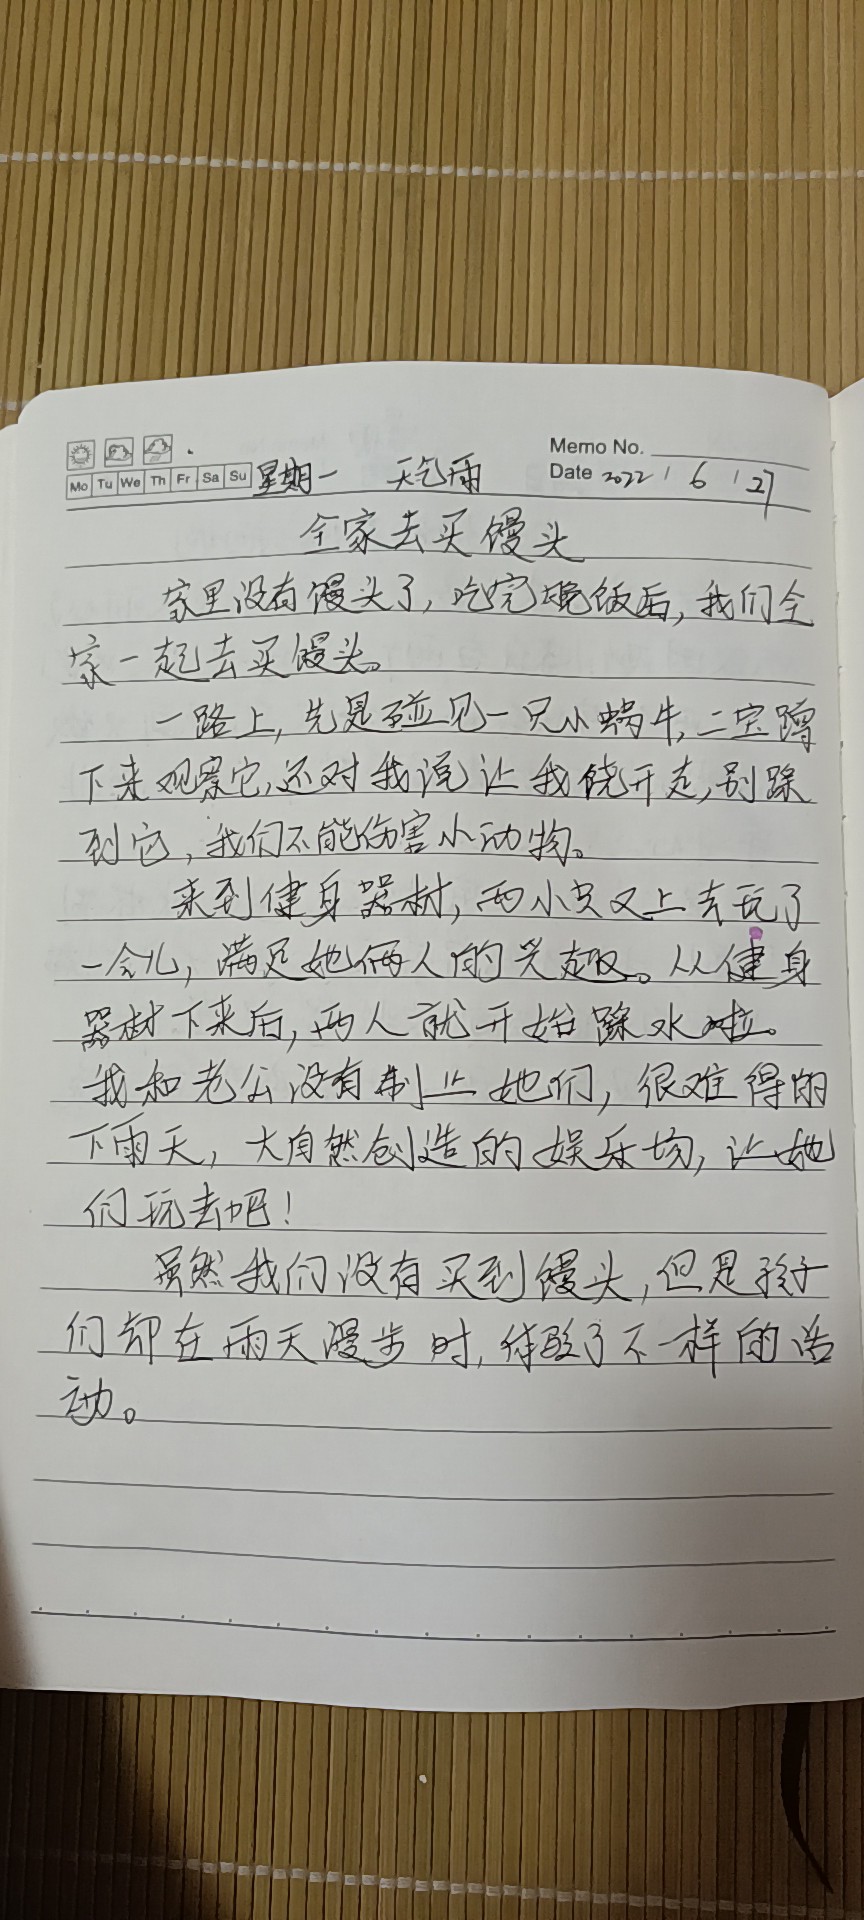 Memo No.
Mo Tu We Th Fr Sa Su 星期一 天气雨 Date 2022 / 6 / 27
全家去买馒头
家里没有馒头了,吃完晚饭后,我们全
家一起去买馒头。
一路上,先是碰见一只小蜗牛,二宝蹲
下来观察它,还对我说让我绕开走,别踩
到它,我们不能伤害小动物。
来到健身器材,两小只又上去玩了
一会儿,满足她俩人的兴趣。从健身
器材下来后,两人就开始踩水啦。
我和老公没有制止她们,很难得的
下雨天,大自然创造的娱乐场,让她
们玩去吧!
虽然我们没有买到馒头,但是孩子
们却在雨天漫步时,体验了不一样的活
动。